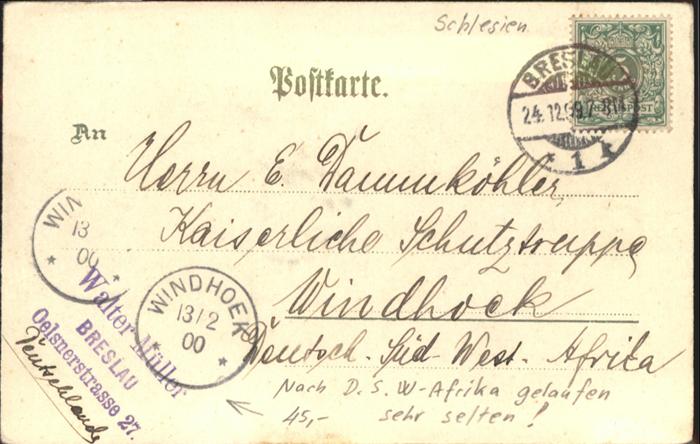 Schlesien
Postkarte.
BRESLAU
24.12.99.7-8N.
* 1 k
REICHSPOST
An
Herrn E. Dammköhler,
Kaiserliche Schutztruppe
Windhoek
Deutsch-Süd-West-Afrika
WIN
13
00
* *
WINDHOEK
13/2
00
* *
Walter Müller
BRESLAU
Oelsnerstrasse 27.
Deutschland
Nach D.S.W-Afrika gelaufen
45,- sehr selten!